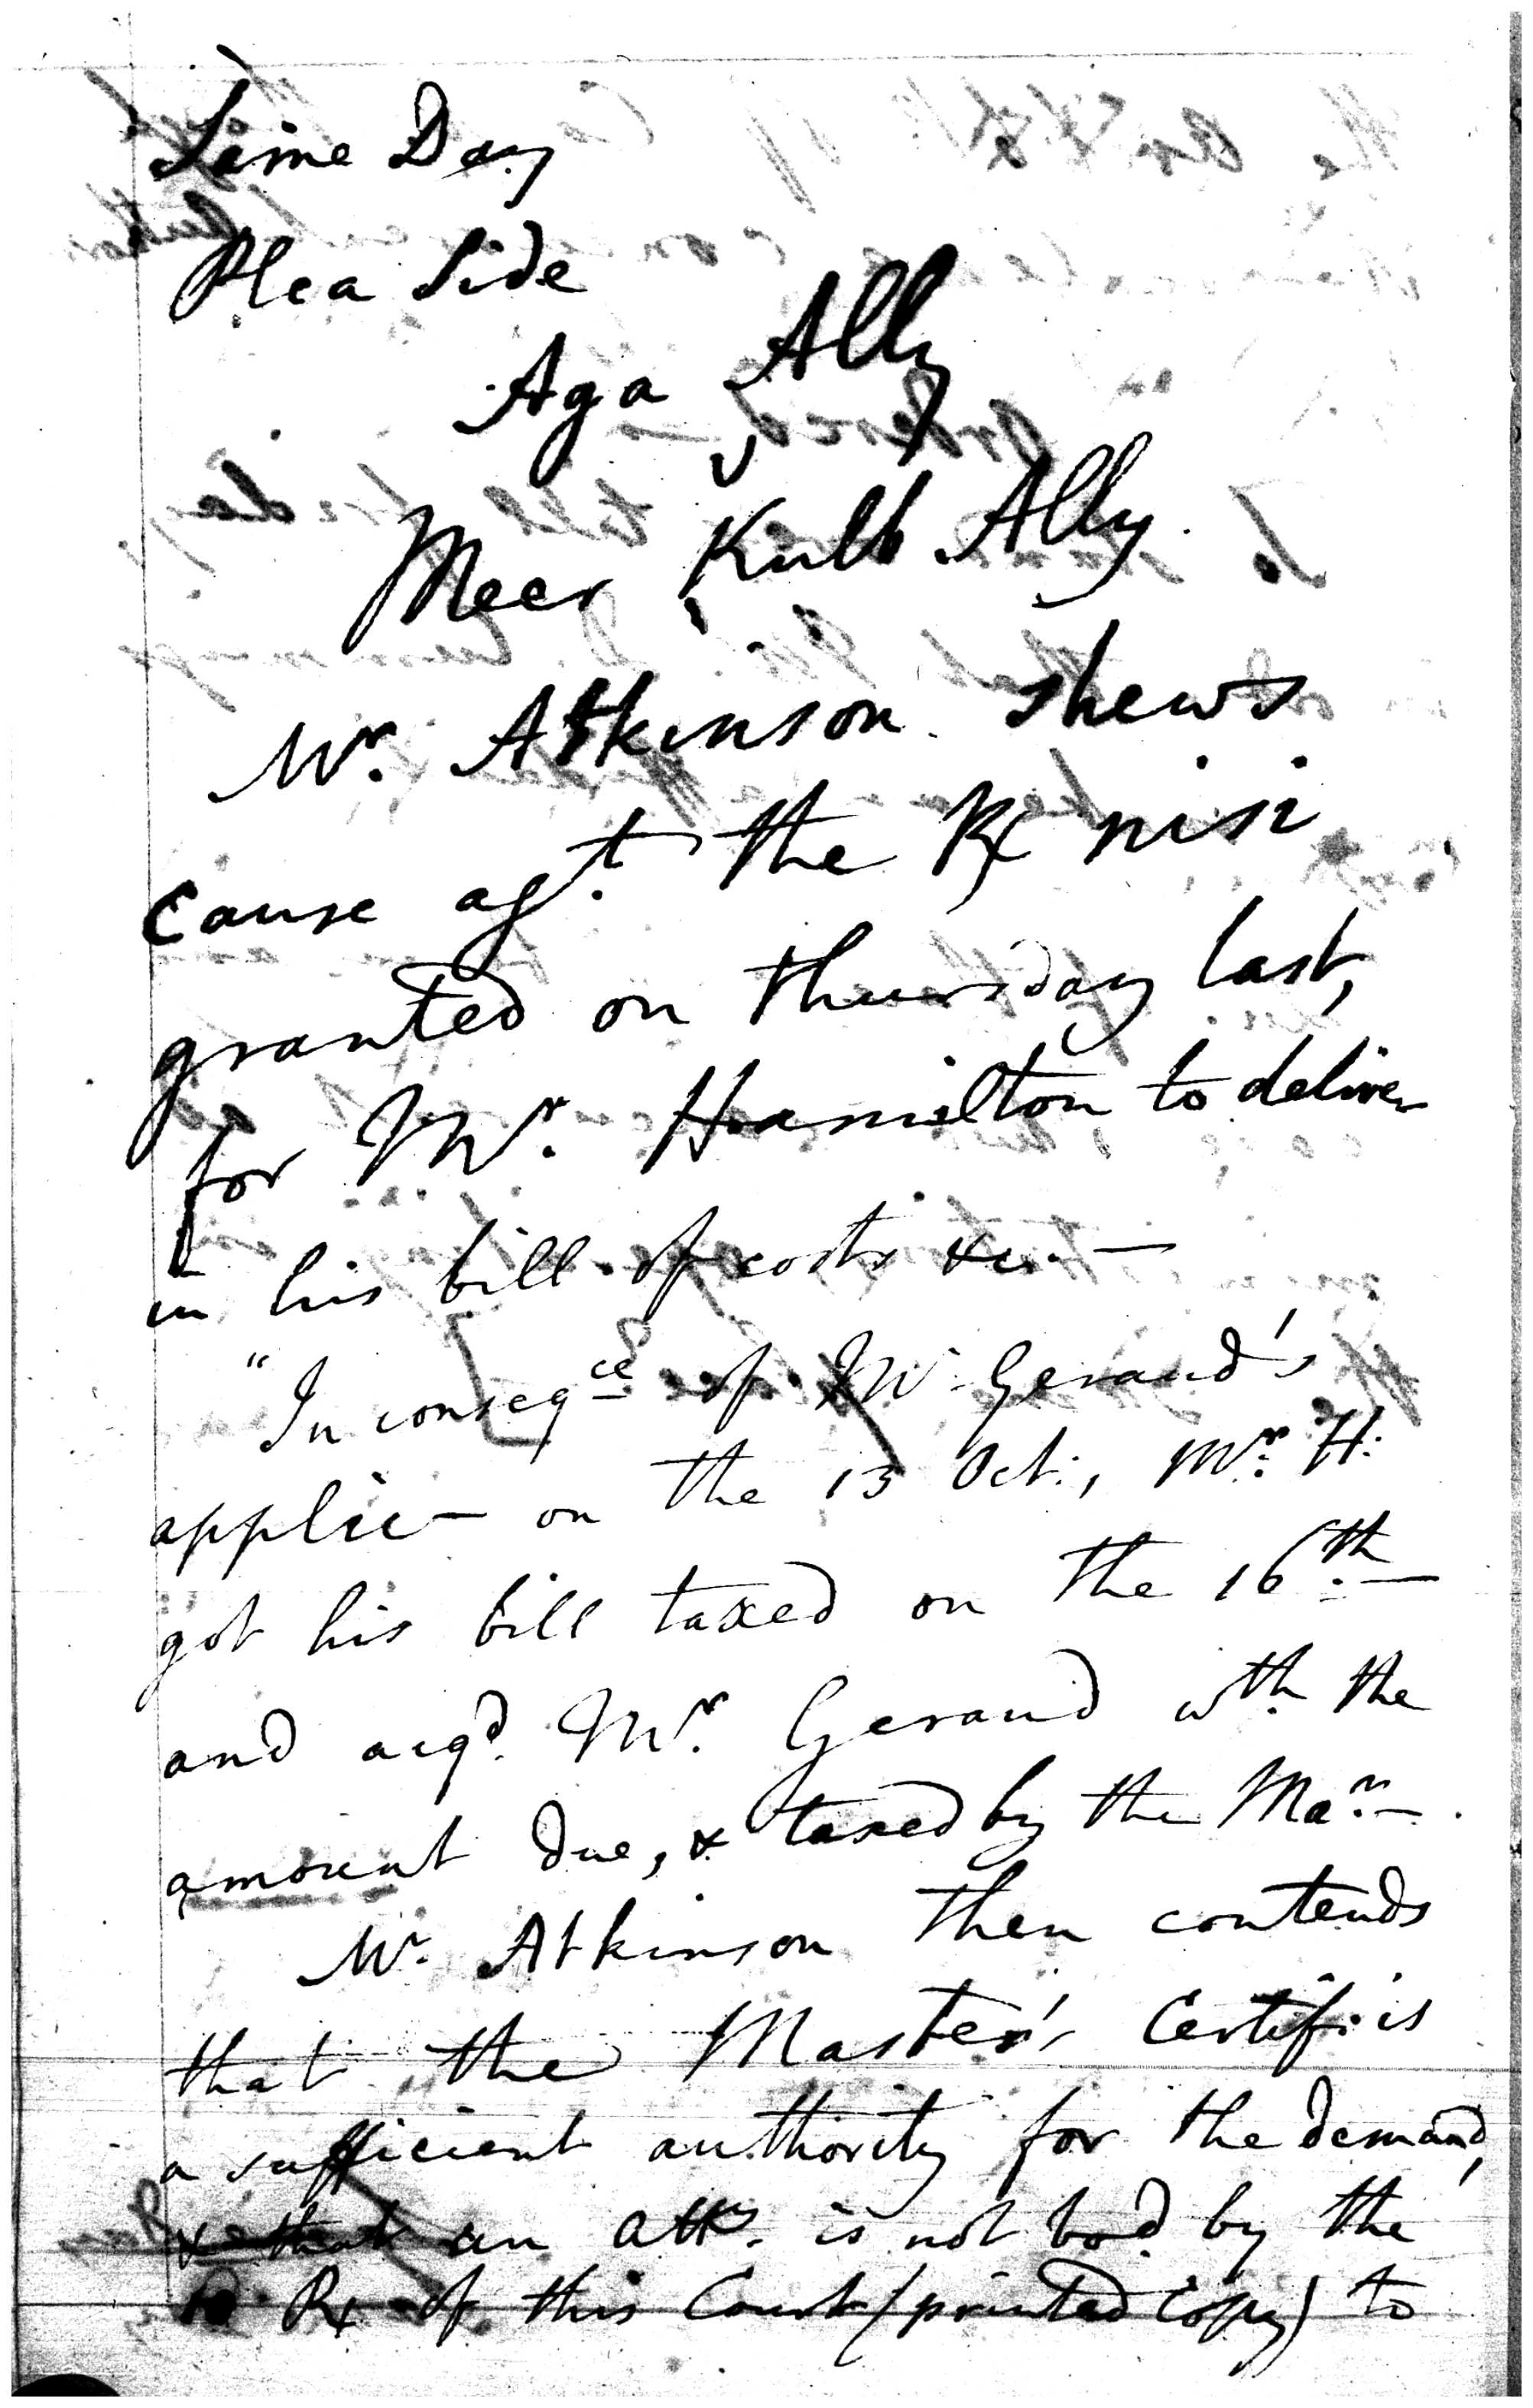 Same Day
Plea Side
Aga Ally
v
Meer Kulb Ally.
Mr. Atkinson shews
cause agt. the Rx nisi
granted on Thursday last,
for Mr. Hamilton to deliver
in his bill of costs &c. —
"In conseqce of Mr Geraud's
applic— on the 13 Oct:, Mr. H:
got his bill taxed on the 16th. —
and acqd. Mr. Geraud wth. the
amount due, & taxed by the Mar. —
Mr. Atkinson then contends
that the Master's Certif: is
a sufficient authority for the demand,
& that an atty. is not bod. by the
Rx of this Court (printed Copy) to